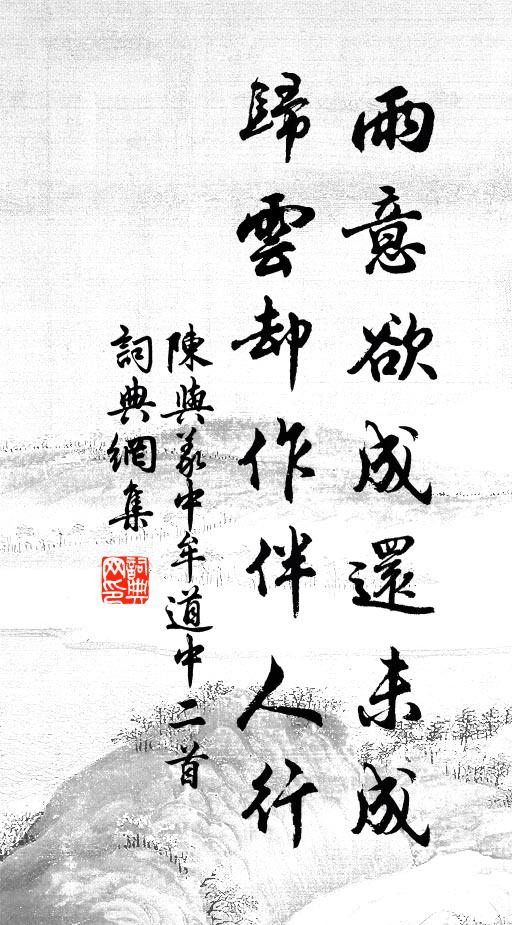 雨意欲成還未成
歸雲却作伴人行
陳與義中牟道中二首
詞典網集
詞典
网印